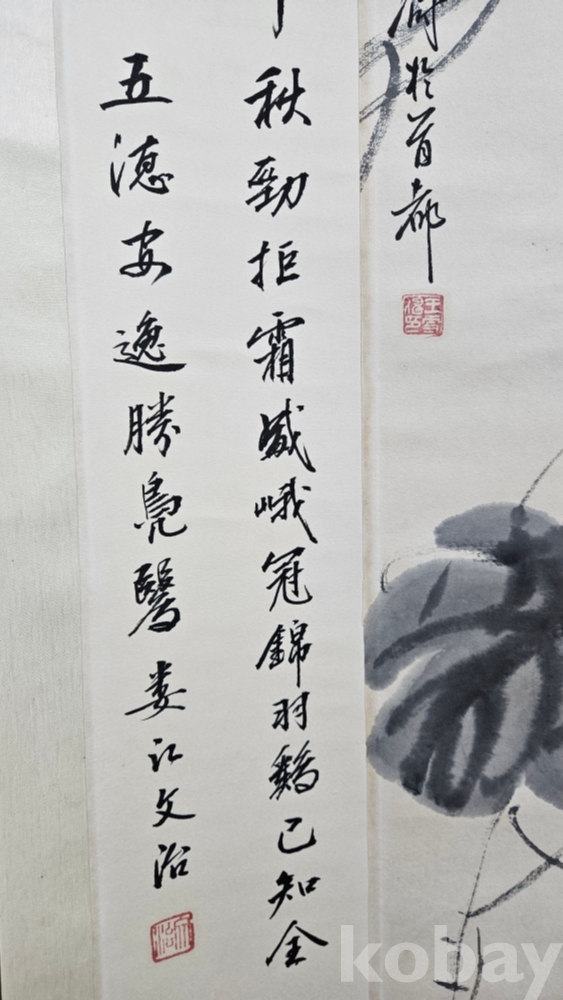 於首都
秋勁拒霜盛峨冠錦羽鷄已知全
五德安逸勝鳧鷖婁江文治
kobay